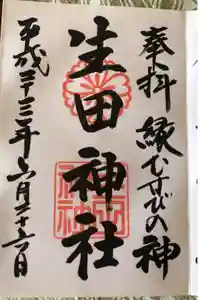 奉拝 縁むすびの神
生田神社
平成二十二年六月二十六日